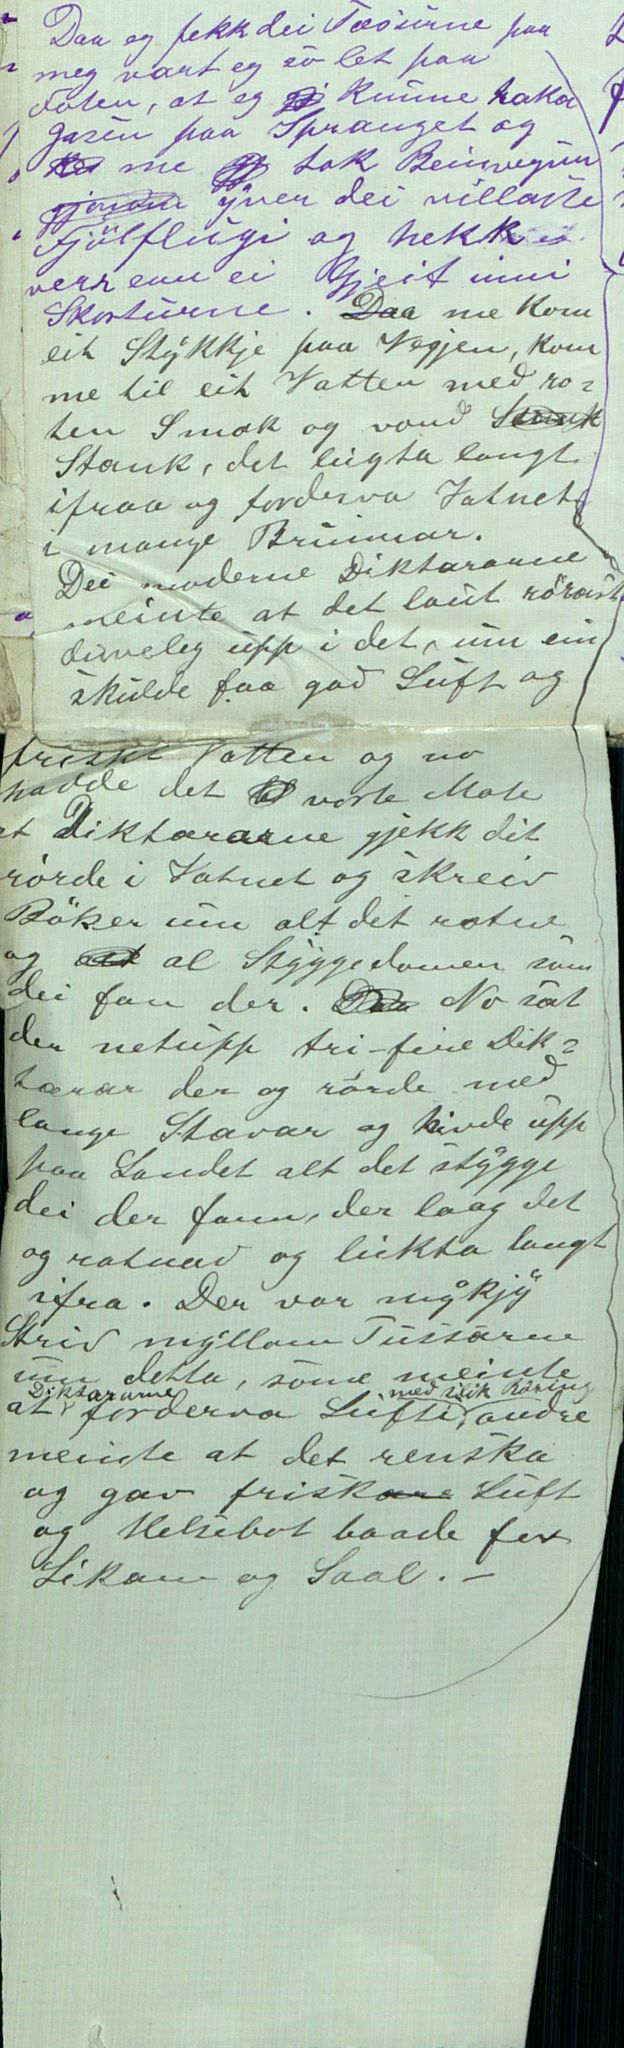 Daa eg fekk dei Tæsurne paa
meg vart eg so let paa
Foten, at eg kunne taka
Gasen paa Spranget og
me tok Beinvegjen
gjönom yver dei villaste
Fjölflugi og hekk
verr enn ei Gjeit inni
Skorturne. Daa me kom
eit Stykkje paa Vegjen, kom
me til eit Vatten med ro-
ten Smak og vond Stank
Stank, det lugta langt
ifraa og forderva Vatnet
i mange Brunnar.
Dei moderne Diktararne
meinte at det laut rörast
duveleg upp i det, um ein
skulde faa god Luft og
friskt Vatten og no
hadde det vorte Mote
at Diktararne gjekk dit
rörde i Vatnet og skreiv
Böker um alt det rotne
og alt al Styggedomen som
dei fan der. Daa No sat
der netupp tri-fire Dik-
tarar der og rörde med
lange Stavar og hivde upp
paa Landet alt det stygge
dei der fann, der laag det
og rotnad og lukta langt
ifra. Der var mykjy
Strid myllom Tussarne
um detta, some meinte
at Diktararne forderva Lufti med slik Röring, andre
meinte at det renska
og gav friskare Luft
og Helsebot baade for
Likam og Saal. -